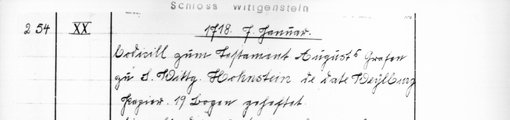 Schloss Wittgenstein
254 XX 1718. 7. Januar.
Codicill zum Testament August's Grafen
zu S. Wittg. Hohnstein de dato Weylburg
Papier. 19 Bogen geheftet.